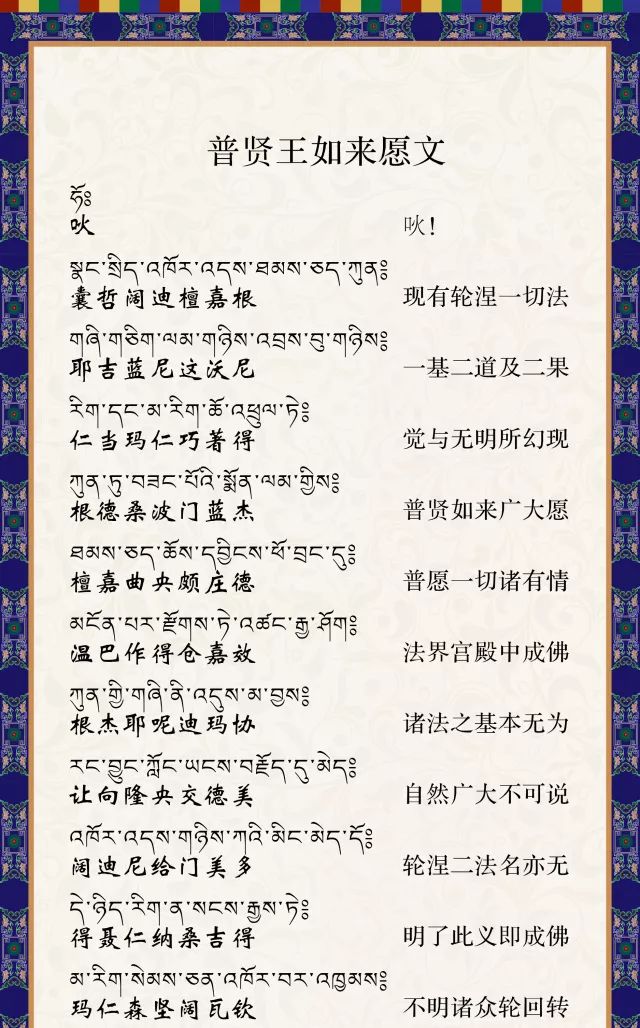 普贤王如来愿文
ཧོ༔
吙	吙！
སྣང་སྲིད་འཁོར་འདས་ཐམས་ཅད་ཀུན༔
囊哲阔迪檀嘉根	现有轮涅一切法
གཞི་གཅིག་ལམ་གཉིས་འབྲས་བུ་གཉིས༔
耶吉蓝尼这沃尼	一基二道及二果
རིག་དང་མ་རིག་ཆོ་འཕྲུལ་ཏེ༔
仁当玛仁巧著得	觉与无明所幻现
ཀུན་ཏུ་བཟང་པོའི་སྨོན་ལམ་གྱིས༔
根德桑波门蓝杰	普贤如来广大愿
ཐམས་ཅད་ཆོས་དབྱིངས་ཕོ་བྲང་དུ༔
檀嘉曲央颇庄德	普愿一切诸有情
མངོན་པར་རྫོགས་ཏེ་འཚང་རྒྱ་ཤོག༔
温巴作得仓嘉效	法界宫殿中成佛
ཀུན་གྱི་གཞི་ནི་འདུས་མ་བྱས༔
根杰耶呢迪玛协	诸法之基本无为
རང་བྱུང་ཀློང་ཡངས་བརྗོད་དུ་མེད༔
让向隆央交德美	自然广大不可说
འཁོར་འདས་གཉིས་ཀའི་མིང་མེད་དོ༔
阔迪尼给门美多	轮涅二法名亦无
དེ་ཉིད་རིག་ན་སངས་རྒྱས་ཏེ༔
得聂仁纳桑吉得	明了此义即成佛
མ་རིག་སེམས་ཅན་འཁོར་བར་འཁྱམས༔
玛仁森坚阔瓦钦	不明诸众轮回转